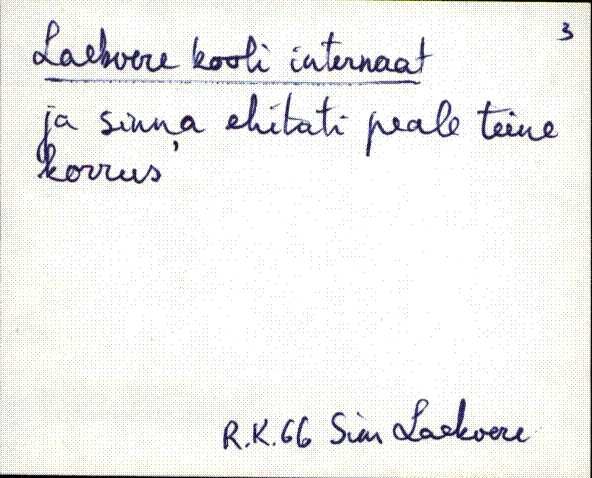 3
Laekvere kooli internaat
ja sinna ehitati peale teine
korrus'
R.K.66 Sim Laekvere